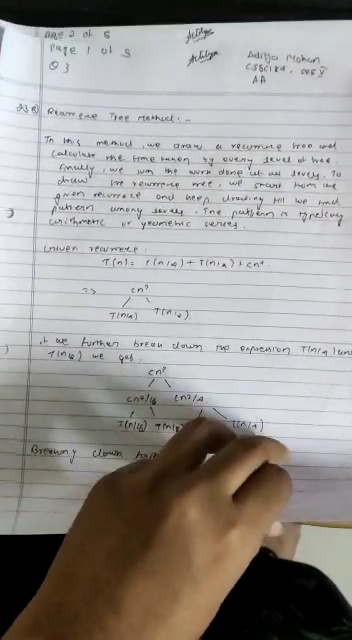 Page 2 of 5
Page 1 of 5
Q3
Aditya
Aditya Mohan
AA
Recurrence Tree Method: -
In this method, we draw a recurrence tree and
calculate the time taken by every level of tree.
Finally, we sum the work done at all levels. To
draw the recurrence tree, we start from the
given recurrence and keep drawing till we find
pattern among levels. The pattern is typically
arithmetic or geometric series.
Given recurrence:
T(n) = T(n/4) + T(n/2) + cn²
=> cn²
T(n/4) T(n/2)
If we further break down the expression T(n/4) and
T(n/2) we get
cn²
cn²/16 cn²/4
T(n/16) T(n/8) T(n/4)
Breaking down